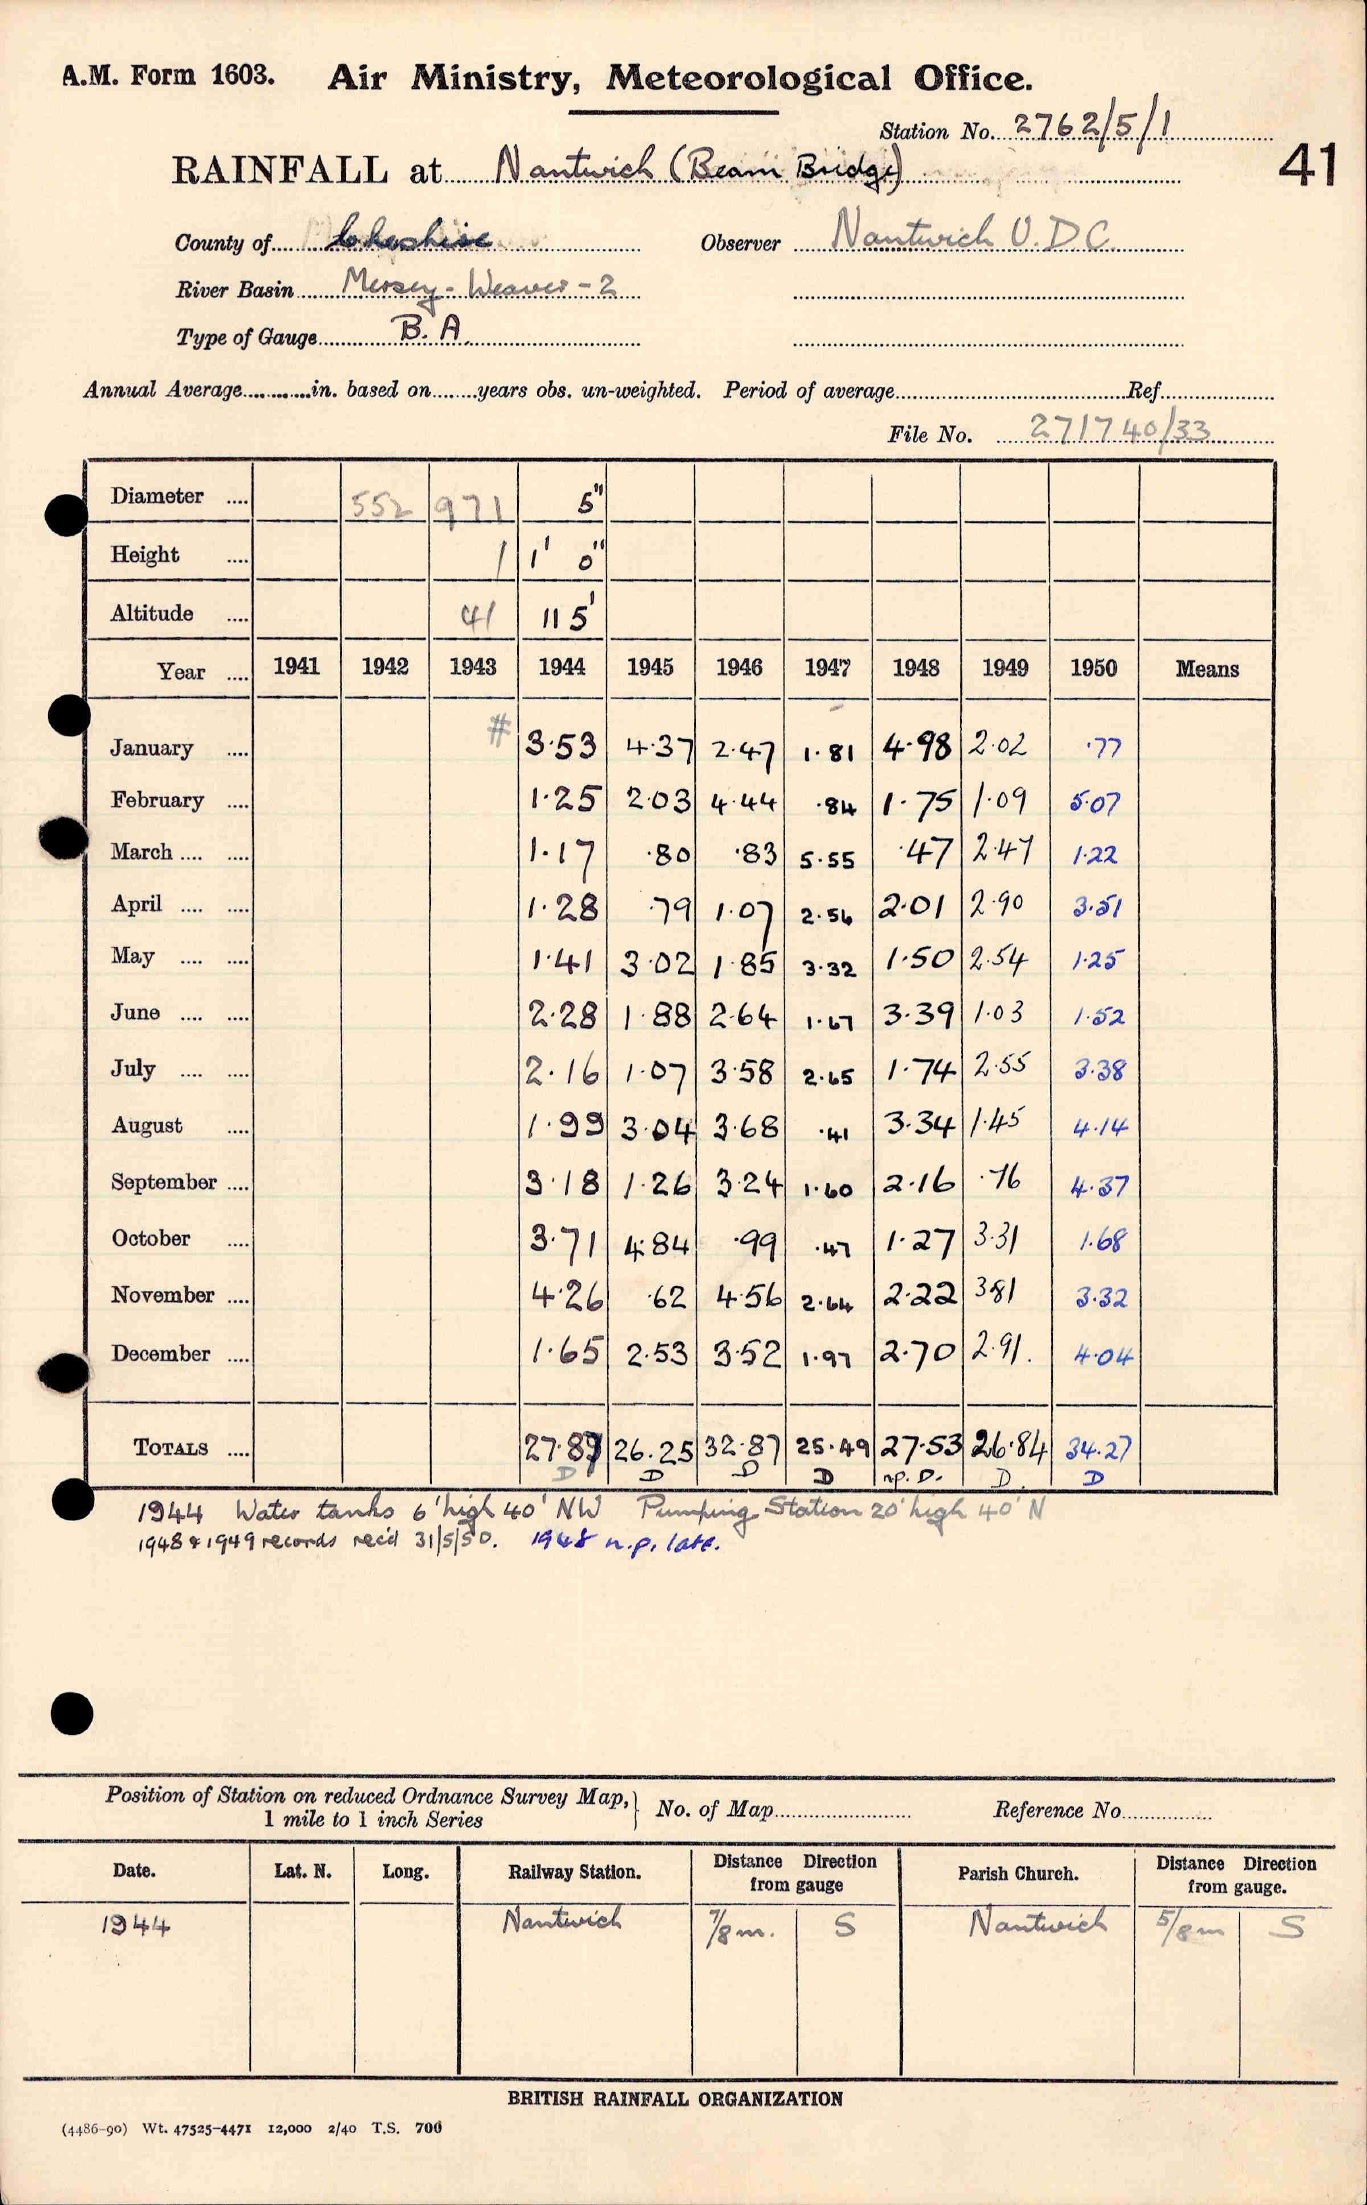 A.M. Form 1603. Air Ministry, Meteorological Office.
Station No. 2762/5/1
41
RAINFALL at Nantwich (Beam Bridge)
County of Cheshire Observer Nantwich U.D.C.
River Basin Mersey - Weaver - 2
Type of Gauge B.A.
Annual Average in. based on years obs. un-weighted. Period of average Ref
File No. 271740/33
Diameter .... 552 971 5"
Height .... 1 1' 0"
Altitude .... 41 115'
Year .... 1941 1942 1943 1944 1945 1946 1947 1948 1949 1950 Means
January .... # 3·53 4·37 2·47 1·81 4·98 2·02 ·77
February .... 1·25 2·03 4·44 ·84 1·75 1·09 5·07
March .... .... 1·17 ·80 ·83 5·55 ·47 2·47 1·22
April .... .... 1·28 ·79 1·07 2·56 2·01 2·90 3·51
May .... .... 1·41 3·02 1·85 3·32 1·50 2·54 1·25
June .... .... 2·28 1·88 2·64 1·67 3·39 1·03 1·52
July .... .... 2·16 1·07 3·58 2·65 1·74 2·55 3·38
August .... 1·99 3·04 3·68 ·41 3·34 1·45 4·14
September .... 3·18 1·26 3·24 1·60 2·16 ·76 4·37
October .... 3·71 4·84 ·99 ·47 1·27 3·31 1·68
November .... 4·26 ·62 4·56 2·64 2·22 3·81 3·32
December .... 1·65 2·53 3·52 1·97 2·70 2·91. 4·04
TOTALS .... 27·87 26·25 32·87 25·49 27·53 26·84 34·27
D D D D n.p. D. D. D
1944 Water tanks 6' high 40' NW Pumping Station 20' high 40' N
1948 & 1949 records rec'd 31/5/50. 1948 n.p. late.
Position of Station on reduced Ordnance Survey Map, No. of Map Reference No.
1 mile to 1 inch Series
Date. Lat. N. Long. Railway Station. Distance Direction from gauge Parish Church. Distance Direction from gauge.
1944 Nantwich 7/8 m. S Nantwich 5/8 m S
BRITISH RAINFALL ORGANIZATION
(4486-90) Wt. 47525-4471 12,000 2/40 T.S. 700